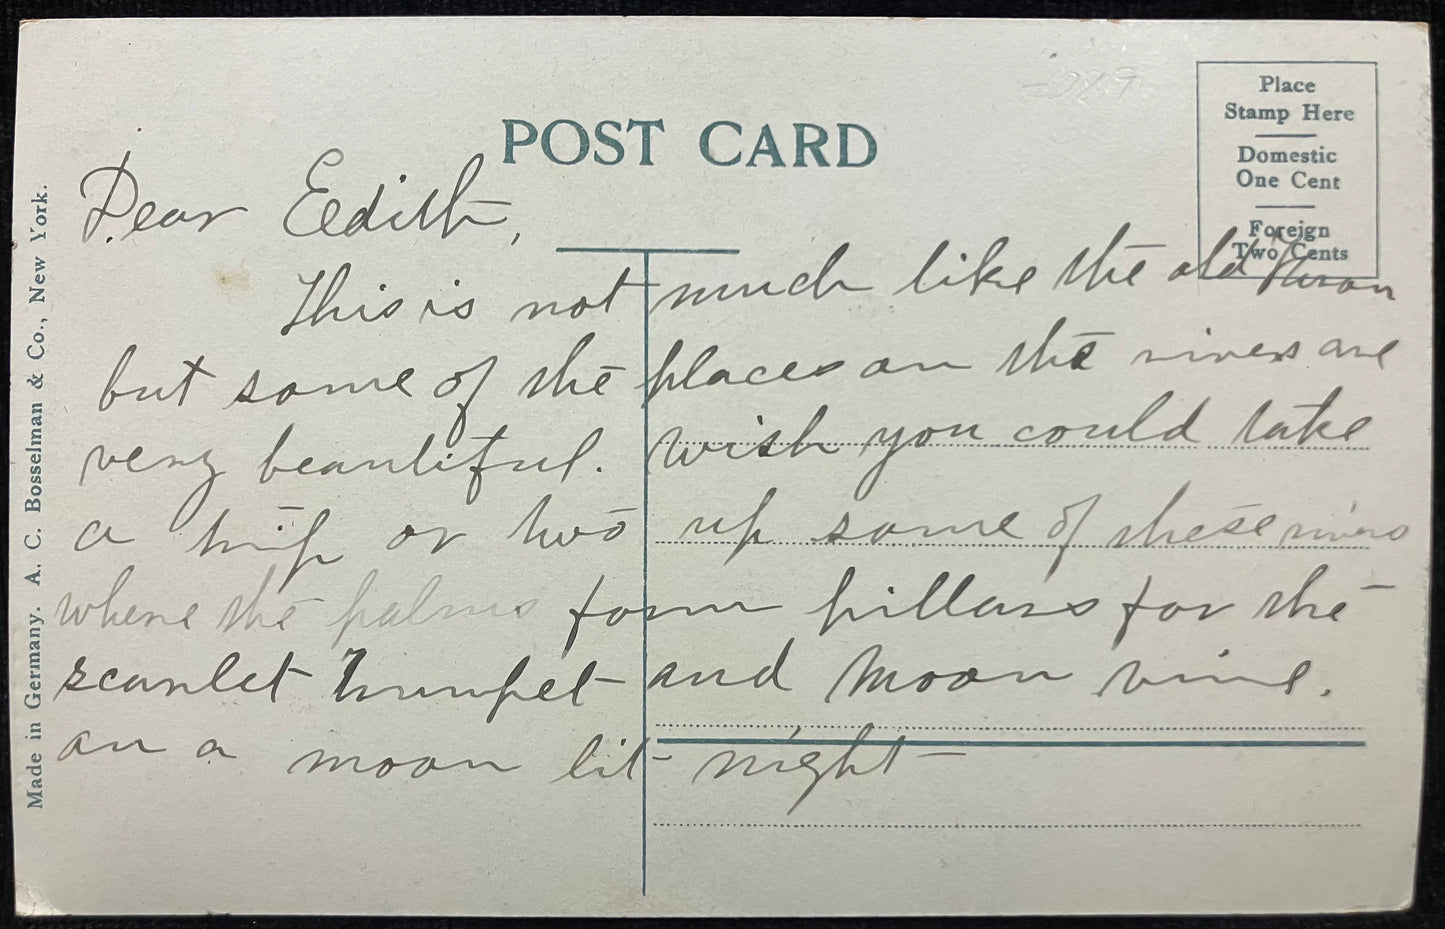 POST CARD
Place
Stamp Here
Domestic
One Cent
Foreign
Two Cents
Made in Germany. A. C. Bosselman & Co., New York.
Dear Edith,
This is not much like the old Huron
but some of the places on the rivers are
very beautiful. Wish you could take
a trip or two up some of these rivers
where the palms form pillars for the
scarlet Trumpet and Moon vine.
on a moon lit night